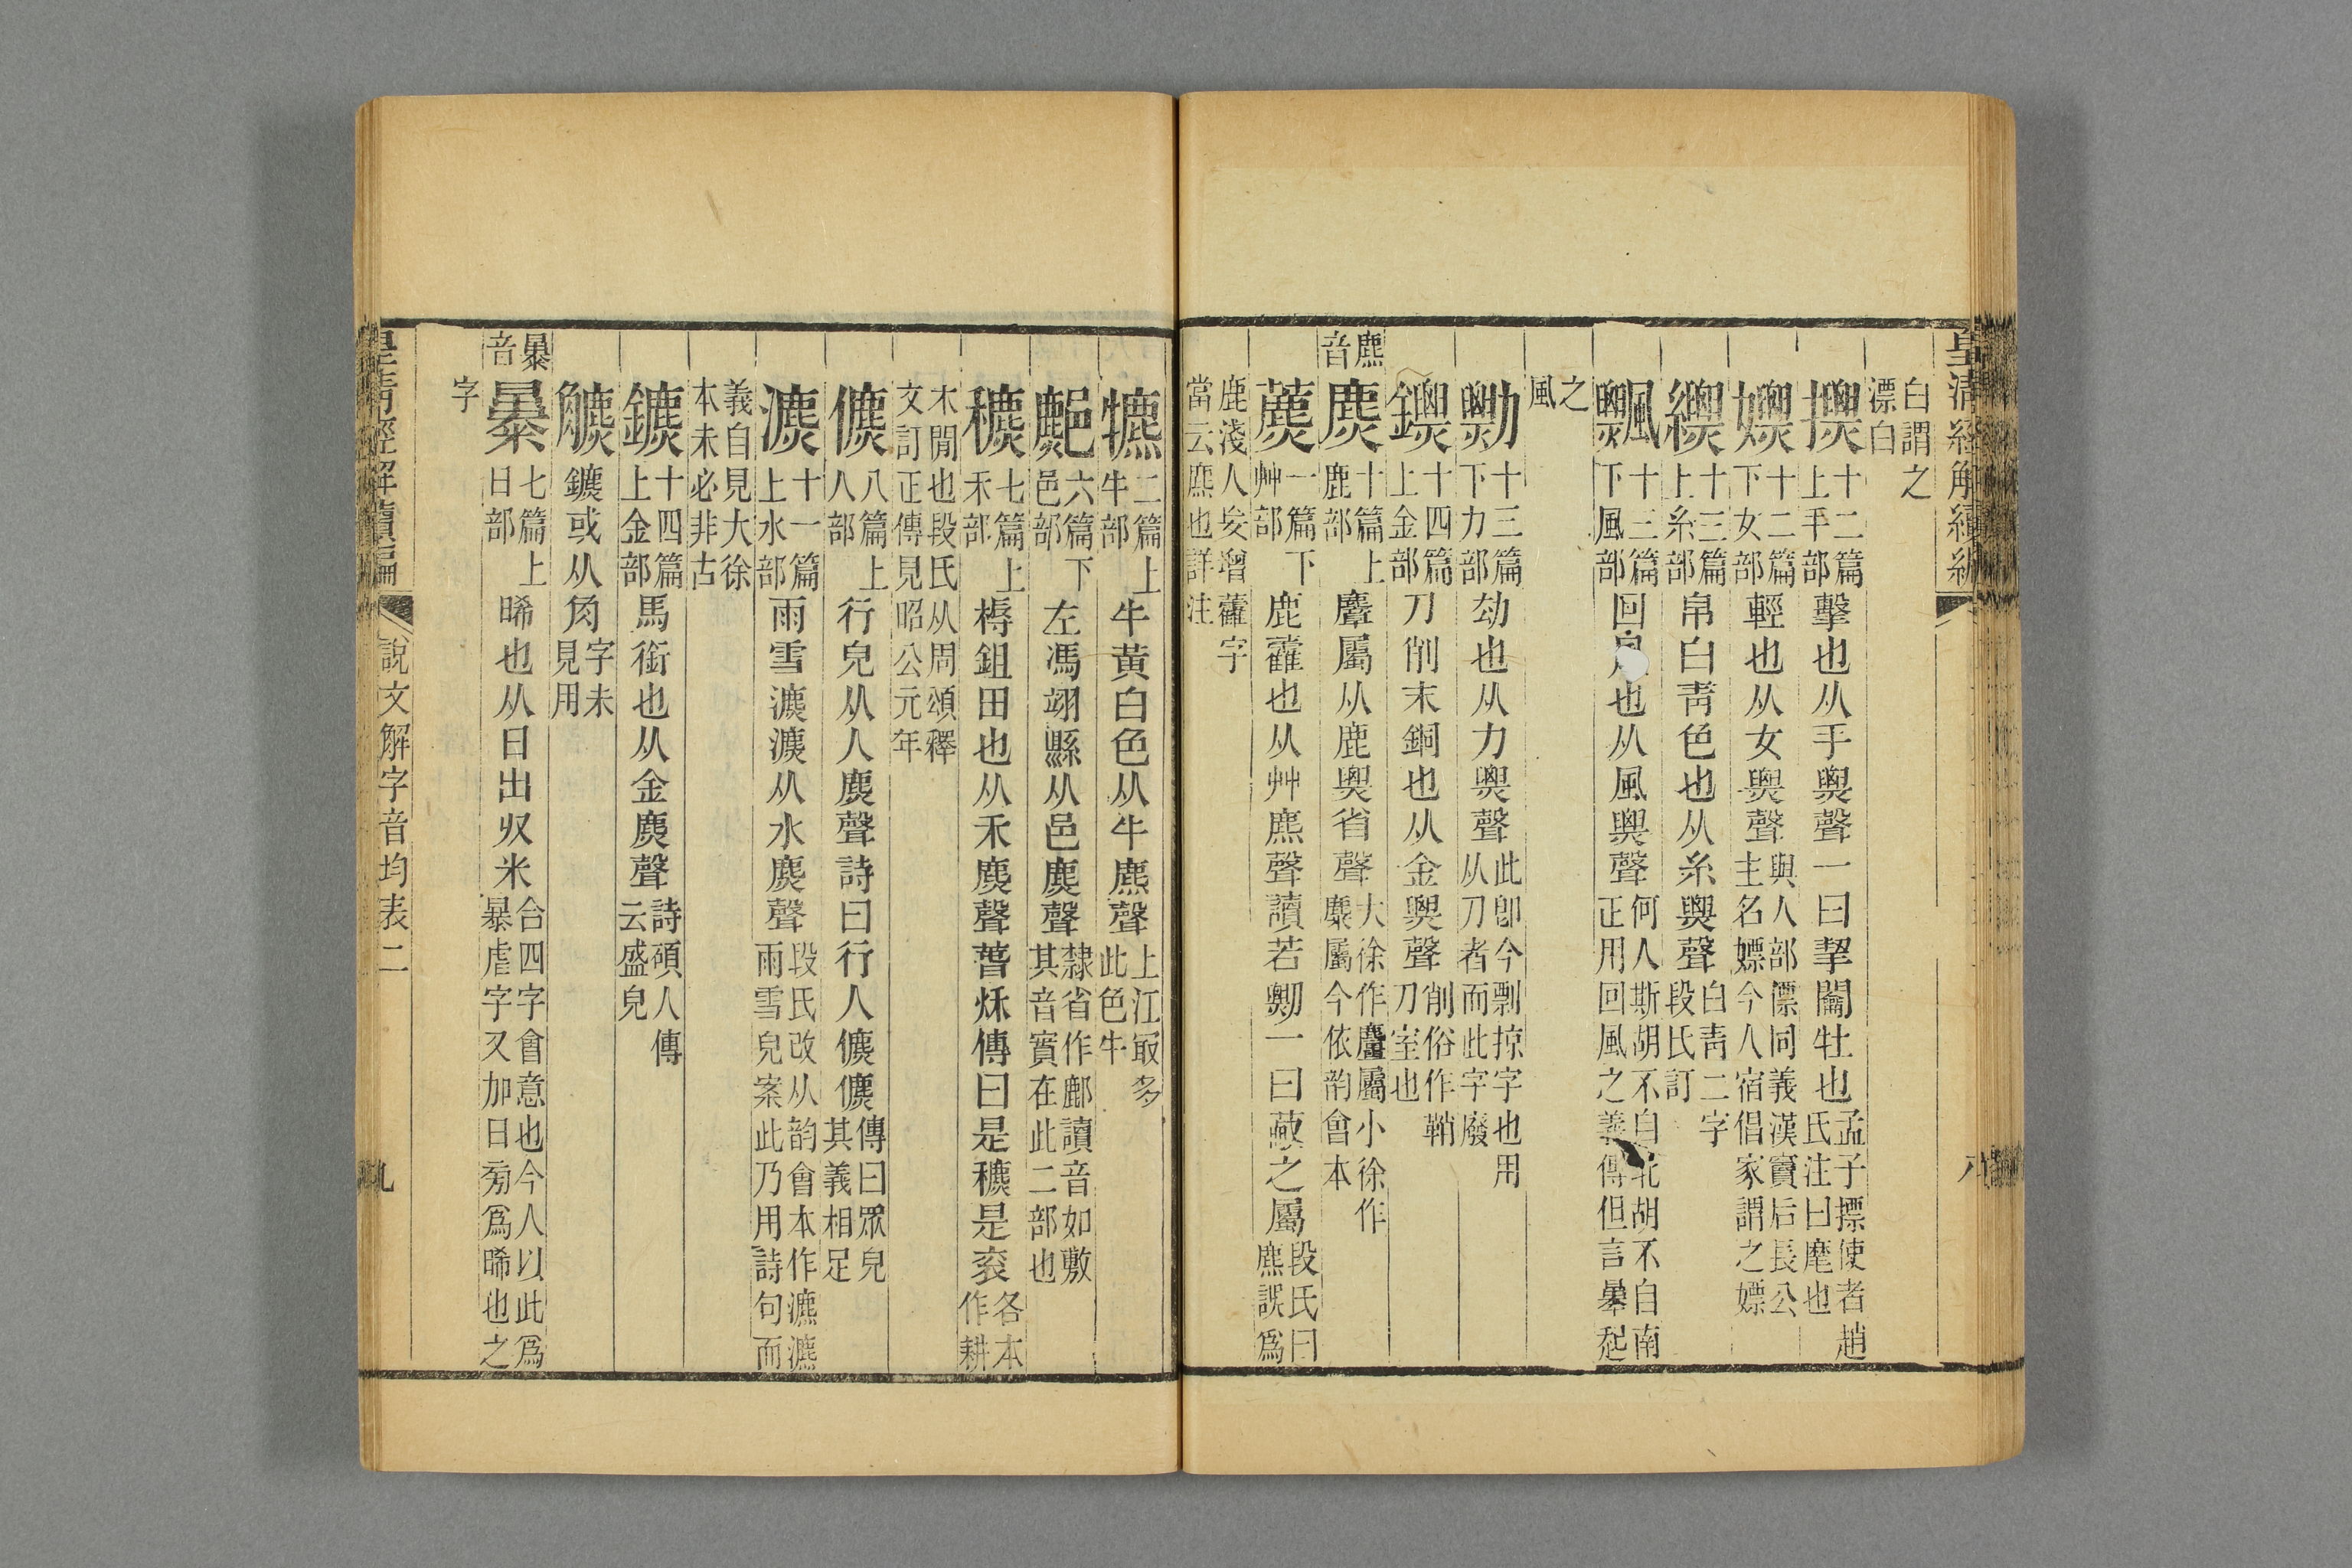 皇清經解續編
八
白謂之
漂白
摽十二篇上手部擊也从手𤐫聲一曰挈闔牡也孟子摽使者趙氏注曰麾也
嫖十二篇下女部輕也从女𤐫聲與人部僄同義漢竇后長公主名嫖今人宿倡家謂之嫖
縹十三篇上糸部帛白青色也从糸𤐫聲白青二字段氏訂
飄十三篇下風部回風也从風𤐫聲何人斯胡不自北胡不自南正用回風之義傳但言㬥起
之
風
勡十三篇下力部劫也从力𤐫聲此卽今剽掠字也用从刀者而此字廢
鏢十四篇上金部刀削末銅也从金𤐫聲削俗作鞘刀室也
麃音
麃十篇上鹿部麞屬从鹿𤐫省聲大徐作麠屬小徐作麋屬今依韵會本
藨一篇下艸部鹿藿也从艸麃聲讀若剽一曰蔽之屬段氏曰麃誤爲
鹿淺人妄增藿字
當云麃也詳注
犥二篇上牛部牛黃白色从牛麃聲上江㝡多此色牛
𨞪六篇下邑部左馮翊縣从邑麃聲隸省作鄜讀音如敷其音實在此二部也
穮七篇上禾部槈鉏田也从禾麃聲春秋傳曰是穮是衮各本作耕
木閒也段氏从周頌釋
文訂正傳見昭公元年
儦八篇上人部行皃从人麃聲詩曰行人儦儦傳曰眾皃其義相足
瀌十一篇上水部雨雪瀌瀌从水麃聲段氏改从韵會本作瀌瀌雨雪皃案此乃用詩句而
義自見大徐
本未必非古
鑣十四篇上金部馬銜也从金麃聲詩碩人傳云盛皃
䚇鑣或从角字未見用
㬥音
㬥七篇上日部晞也从日出収米合四字會意也今人以此爲暴虐字又加日旁爲晞也之
字
皇清經解續編
說文解字音均表二
九